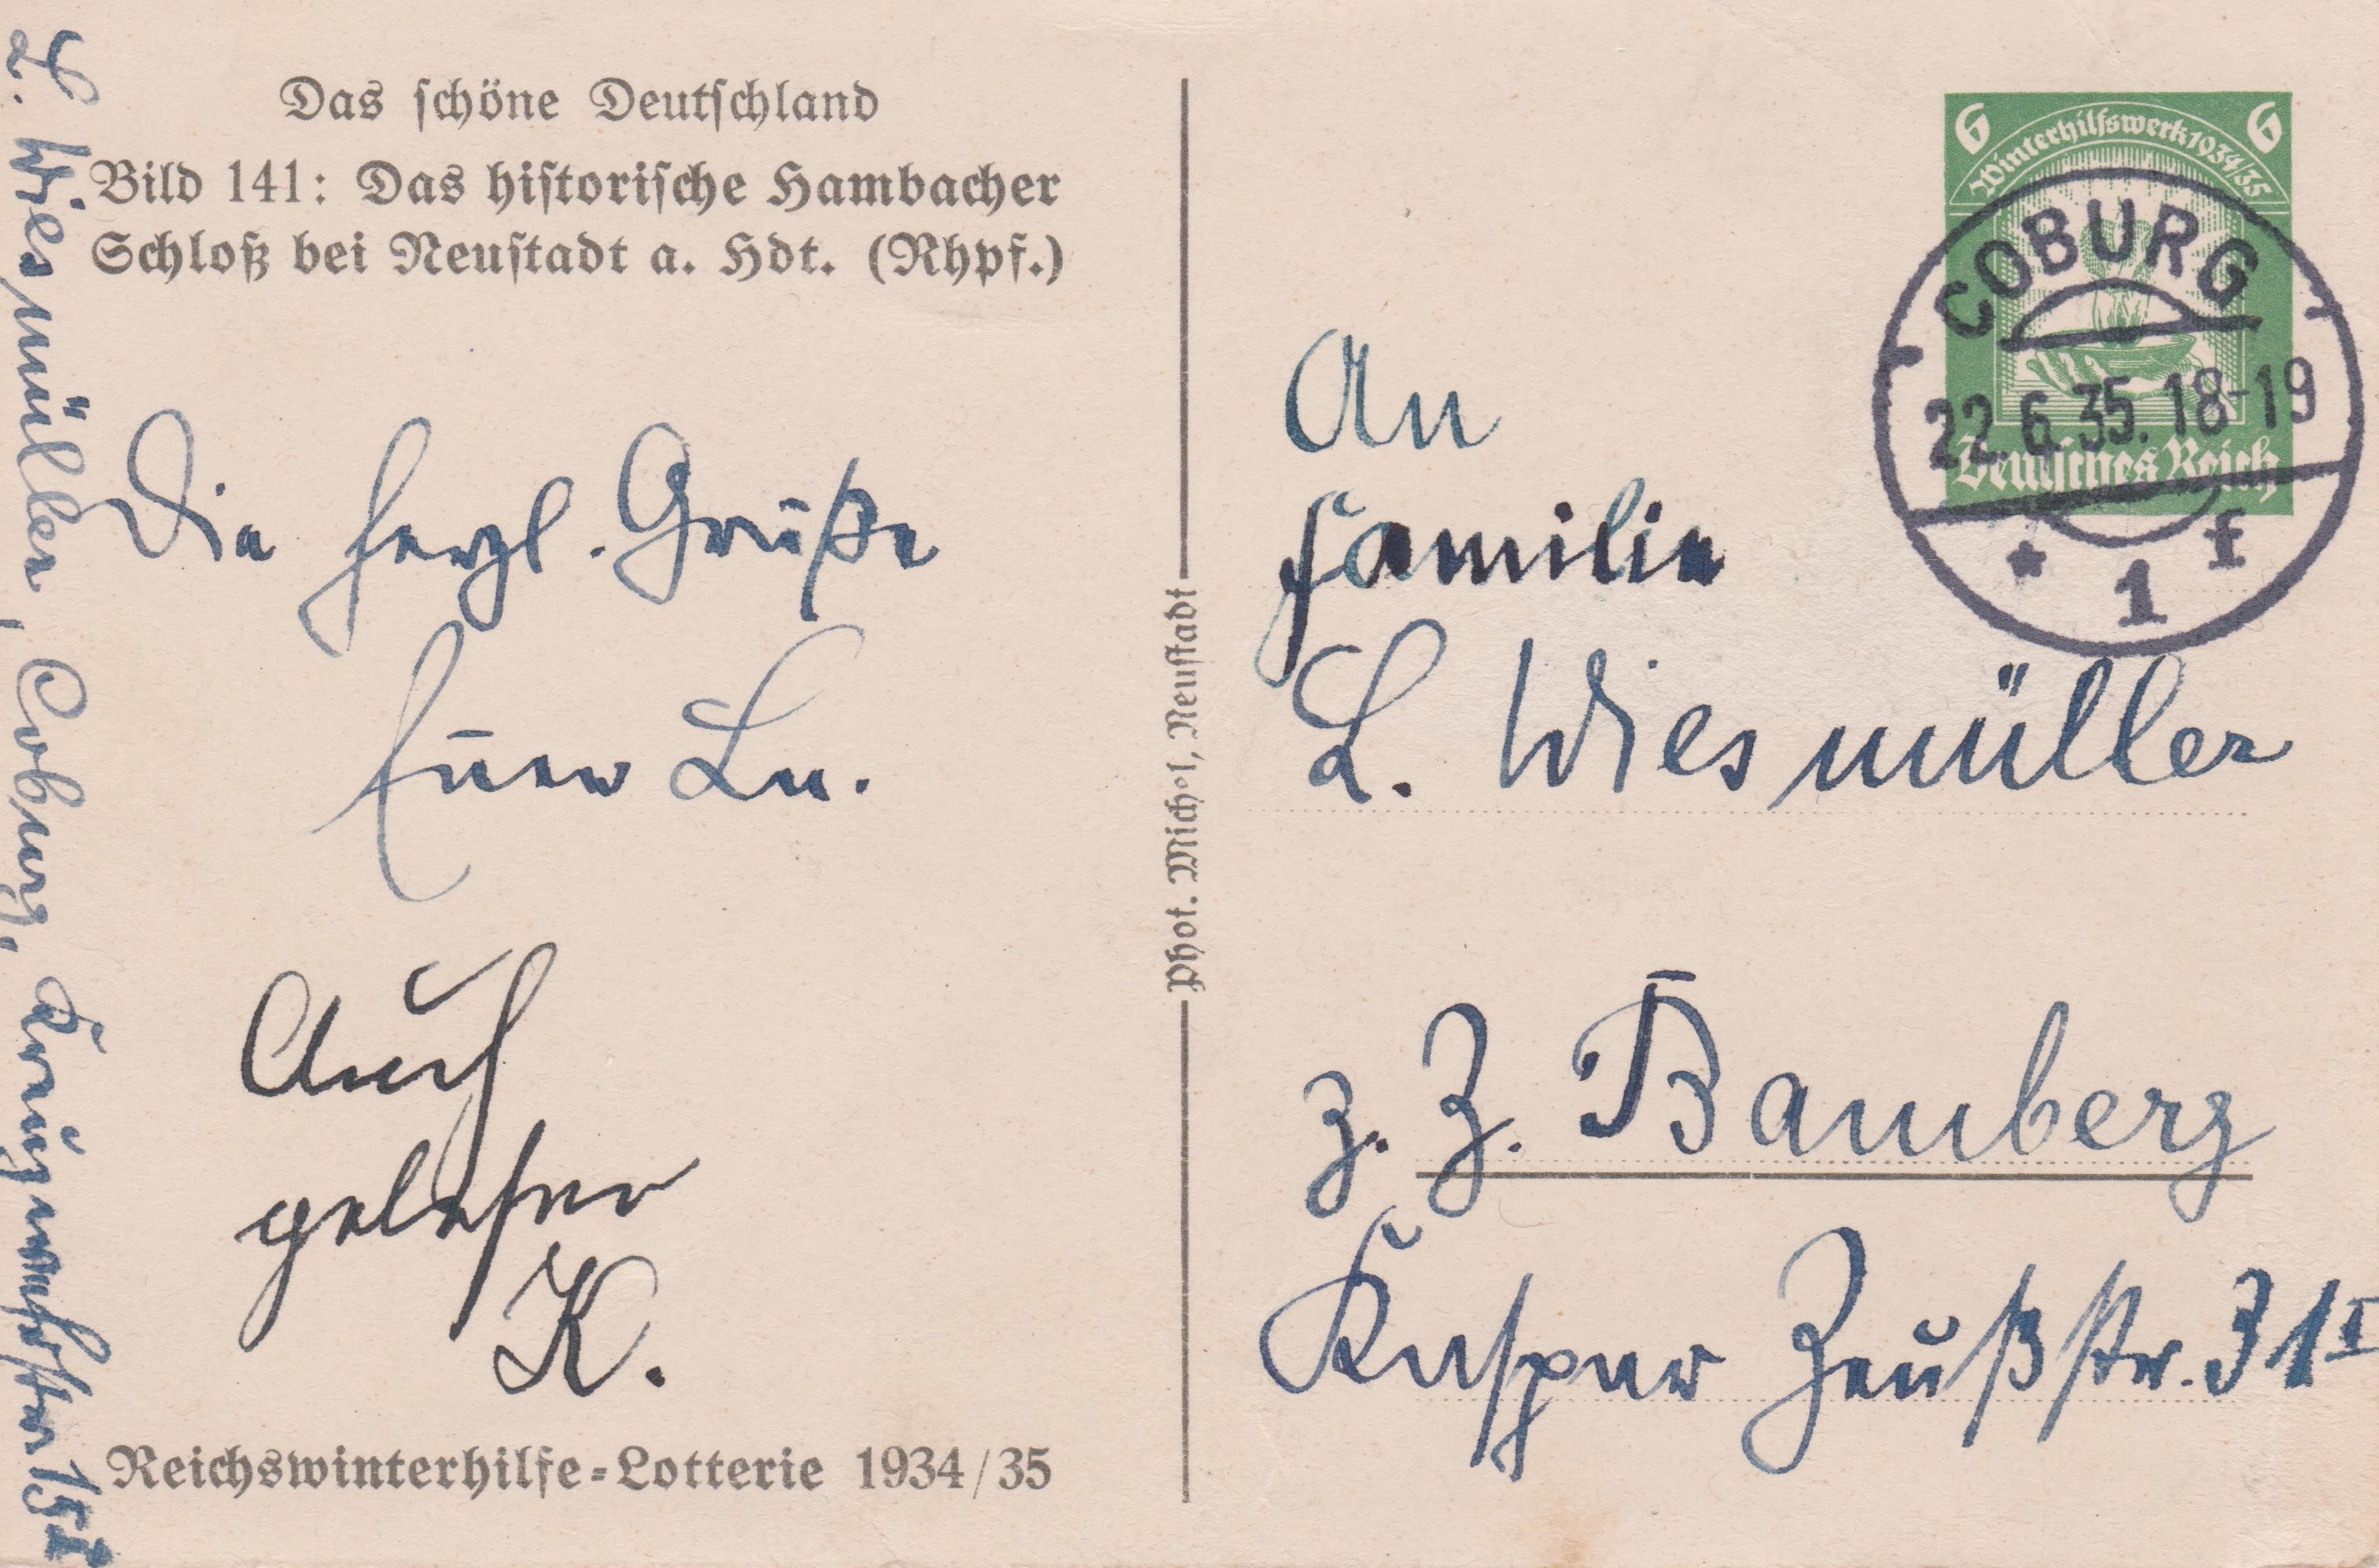 Das schöne Deutschland
Bild 141: Das historische Hambacher
Schloß bei Neustadt a. Hdt. (Rhpf.)
Die herzl. Grüße
Euer Lu.
Auch
gelesen
K.
Reichswinterhilfe-Lotterie 1934/35
L. Wiesmüller, Coburg,
Phot. Michel, Neustadt
6 Winterhilfswerk 1934/35 6
Deutsches Reich
COBURG
22.6.35.18-19
* 1 f
An
Familie
L. Wiesmüller
z. Z. Bamberg
Kaspar Zeußstr. 31 I